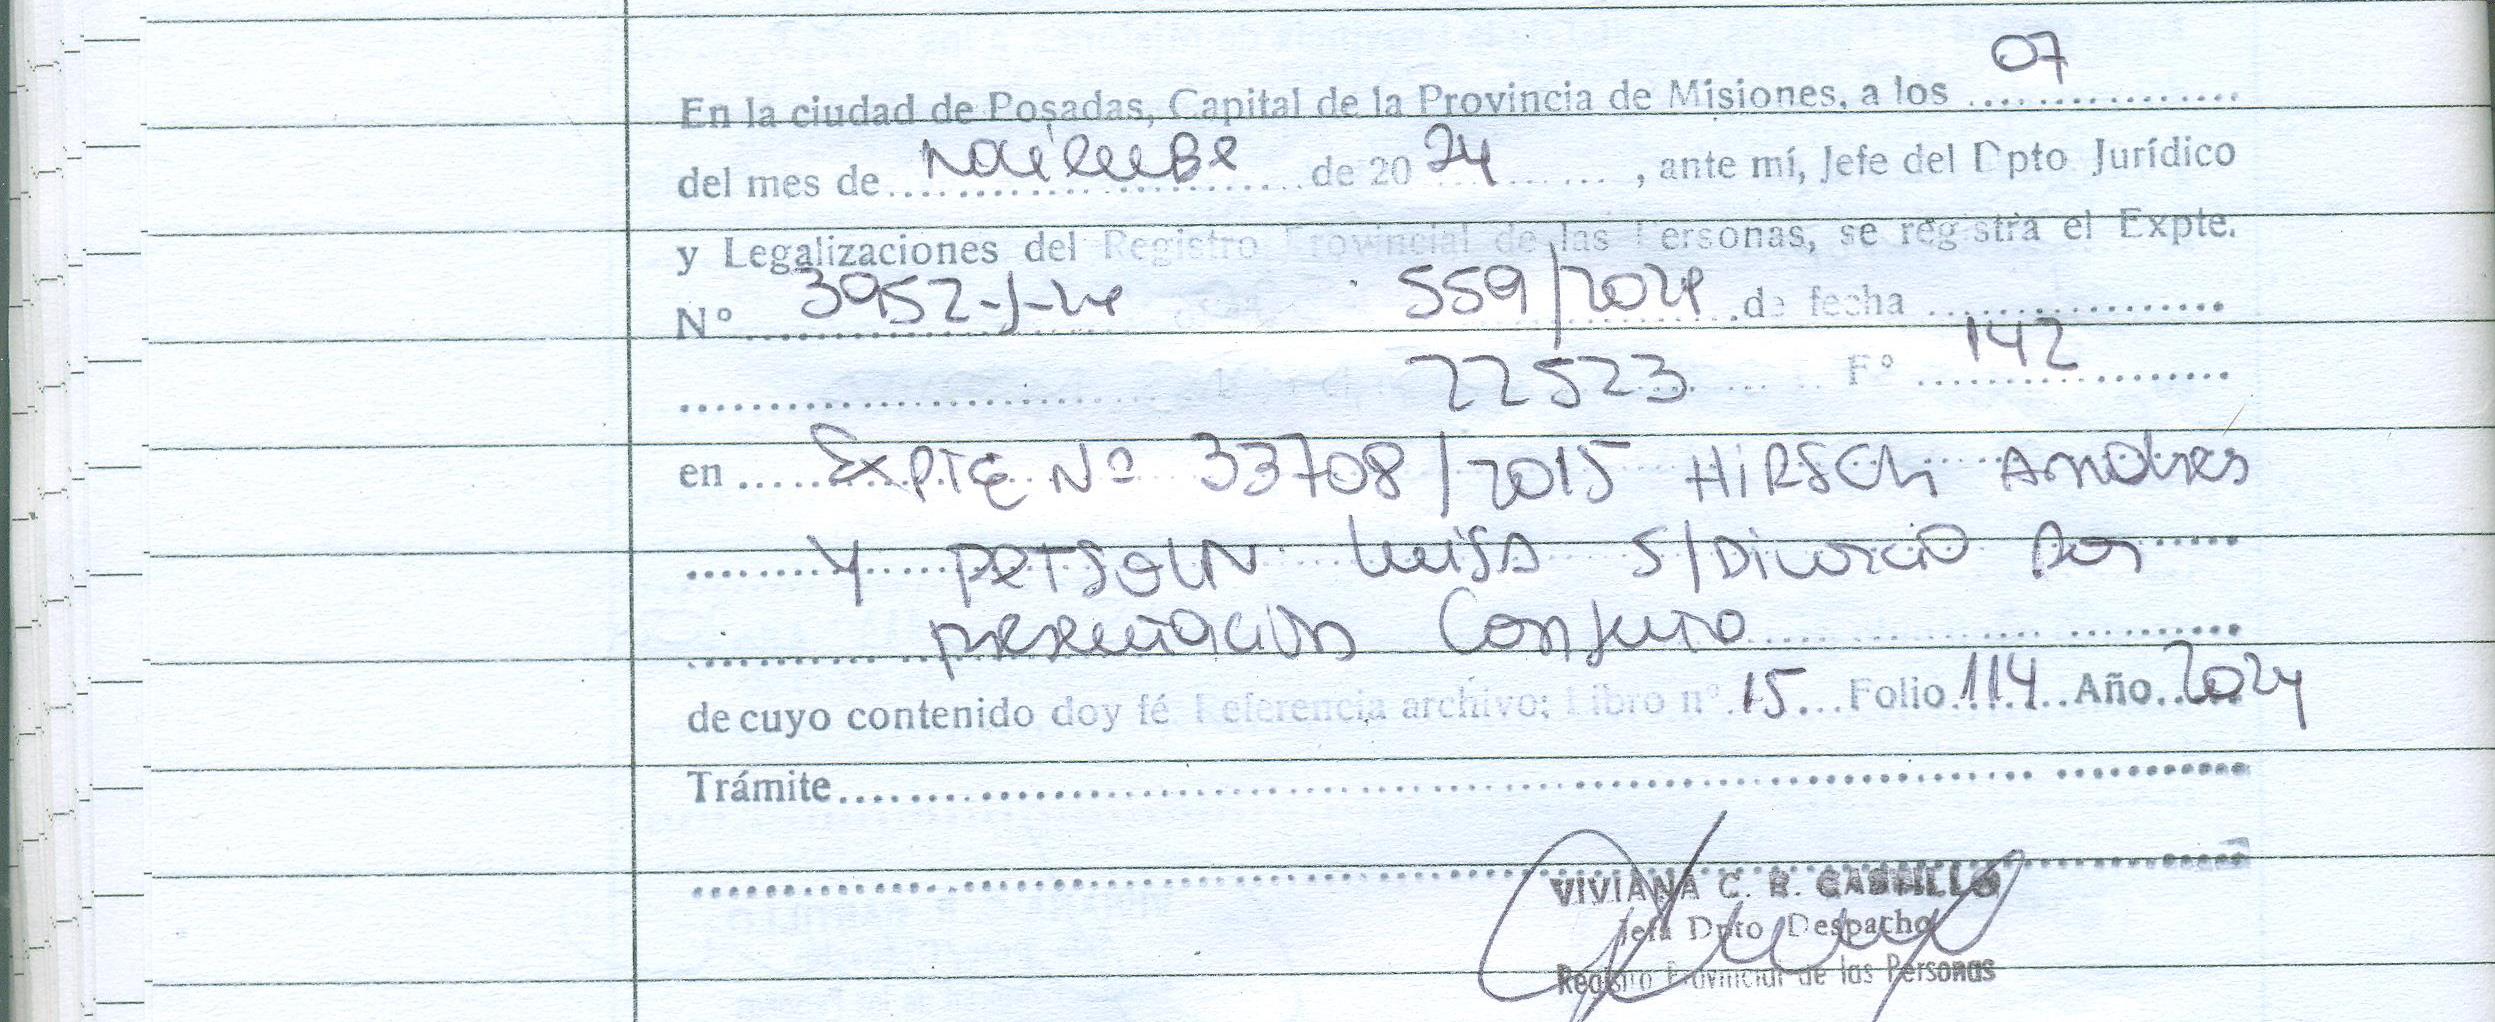 En la ciudad de Posadas, Capital de la Provincia de Misiones, a los 07
del mes de Noviembre de 20 24, ante mí, Jefe del Dpto Jurídico
y Legalizaciones del Registro Provincial de las Personas, se registra el Expte.
Nº 3952-J-24 559/2024 de fecha
22523 Fº 142
en EXPTE Nº 33708/2015 HIRSCH Andres
Y PETSOLN Luisa S/Divorcio Por
presentación Conjunta
de cuyo contenido doy fé Referencia archivo: Libro nº 15 Folio 114 Año 2024
Trámite
VIVIANA C. R. CASTILLO
Jefa Dpto Despacho
Registro Provincial de las Personas